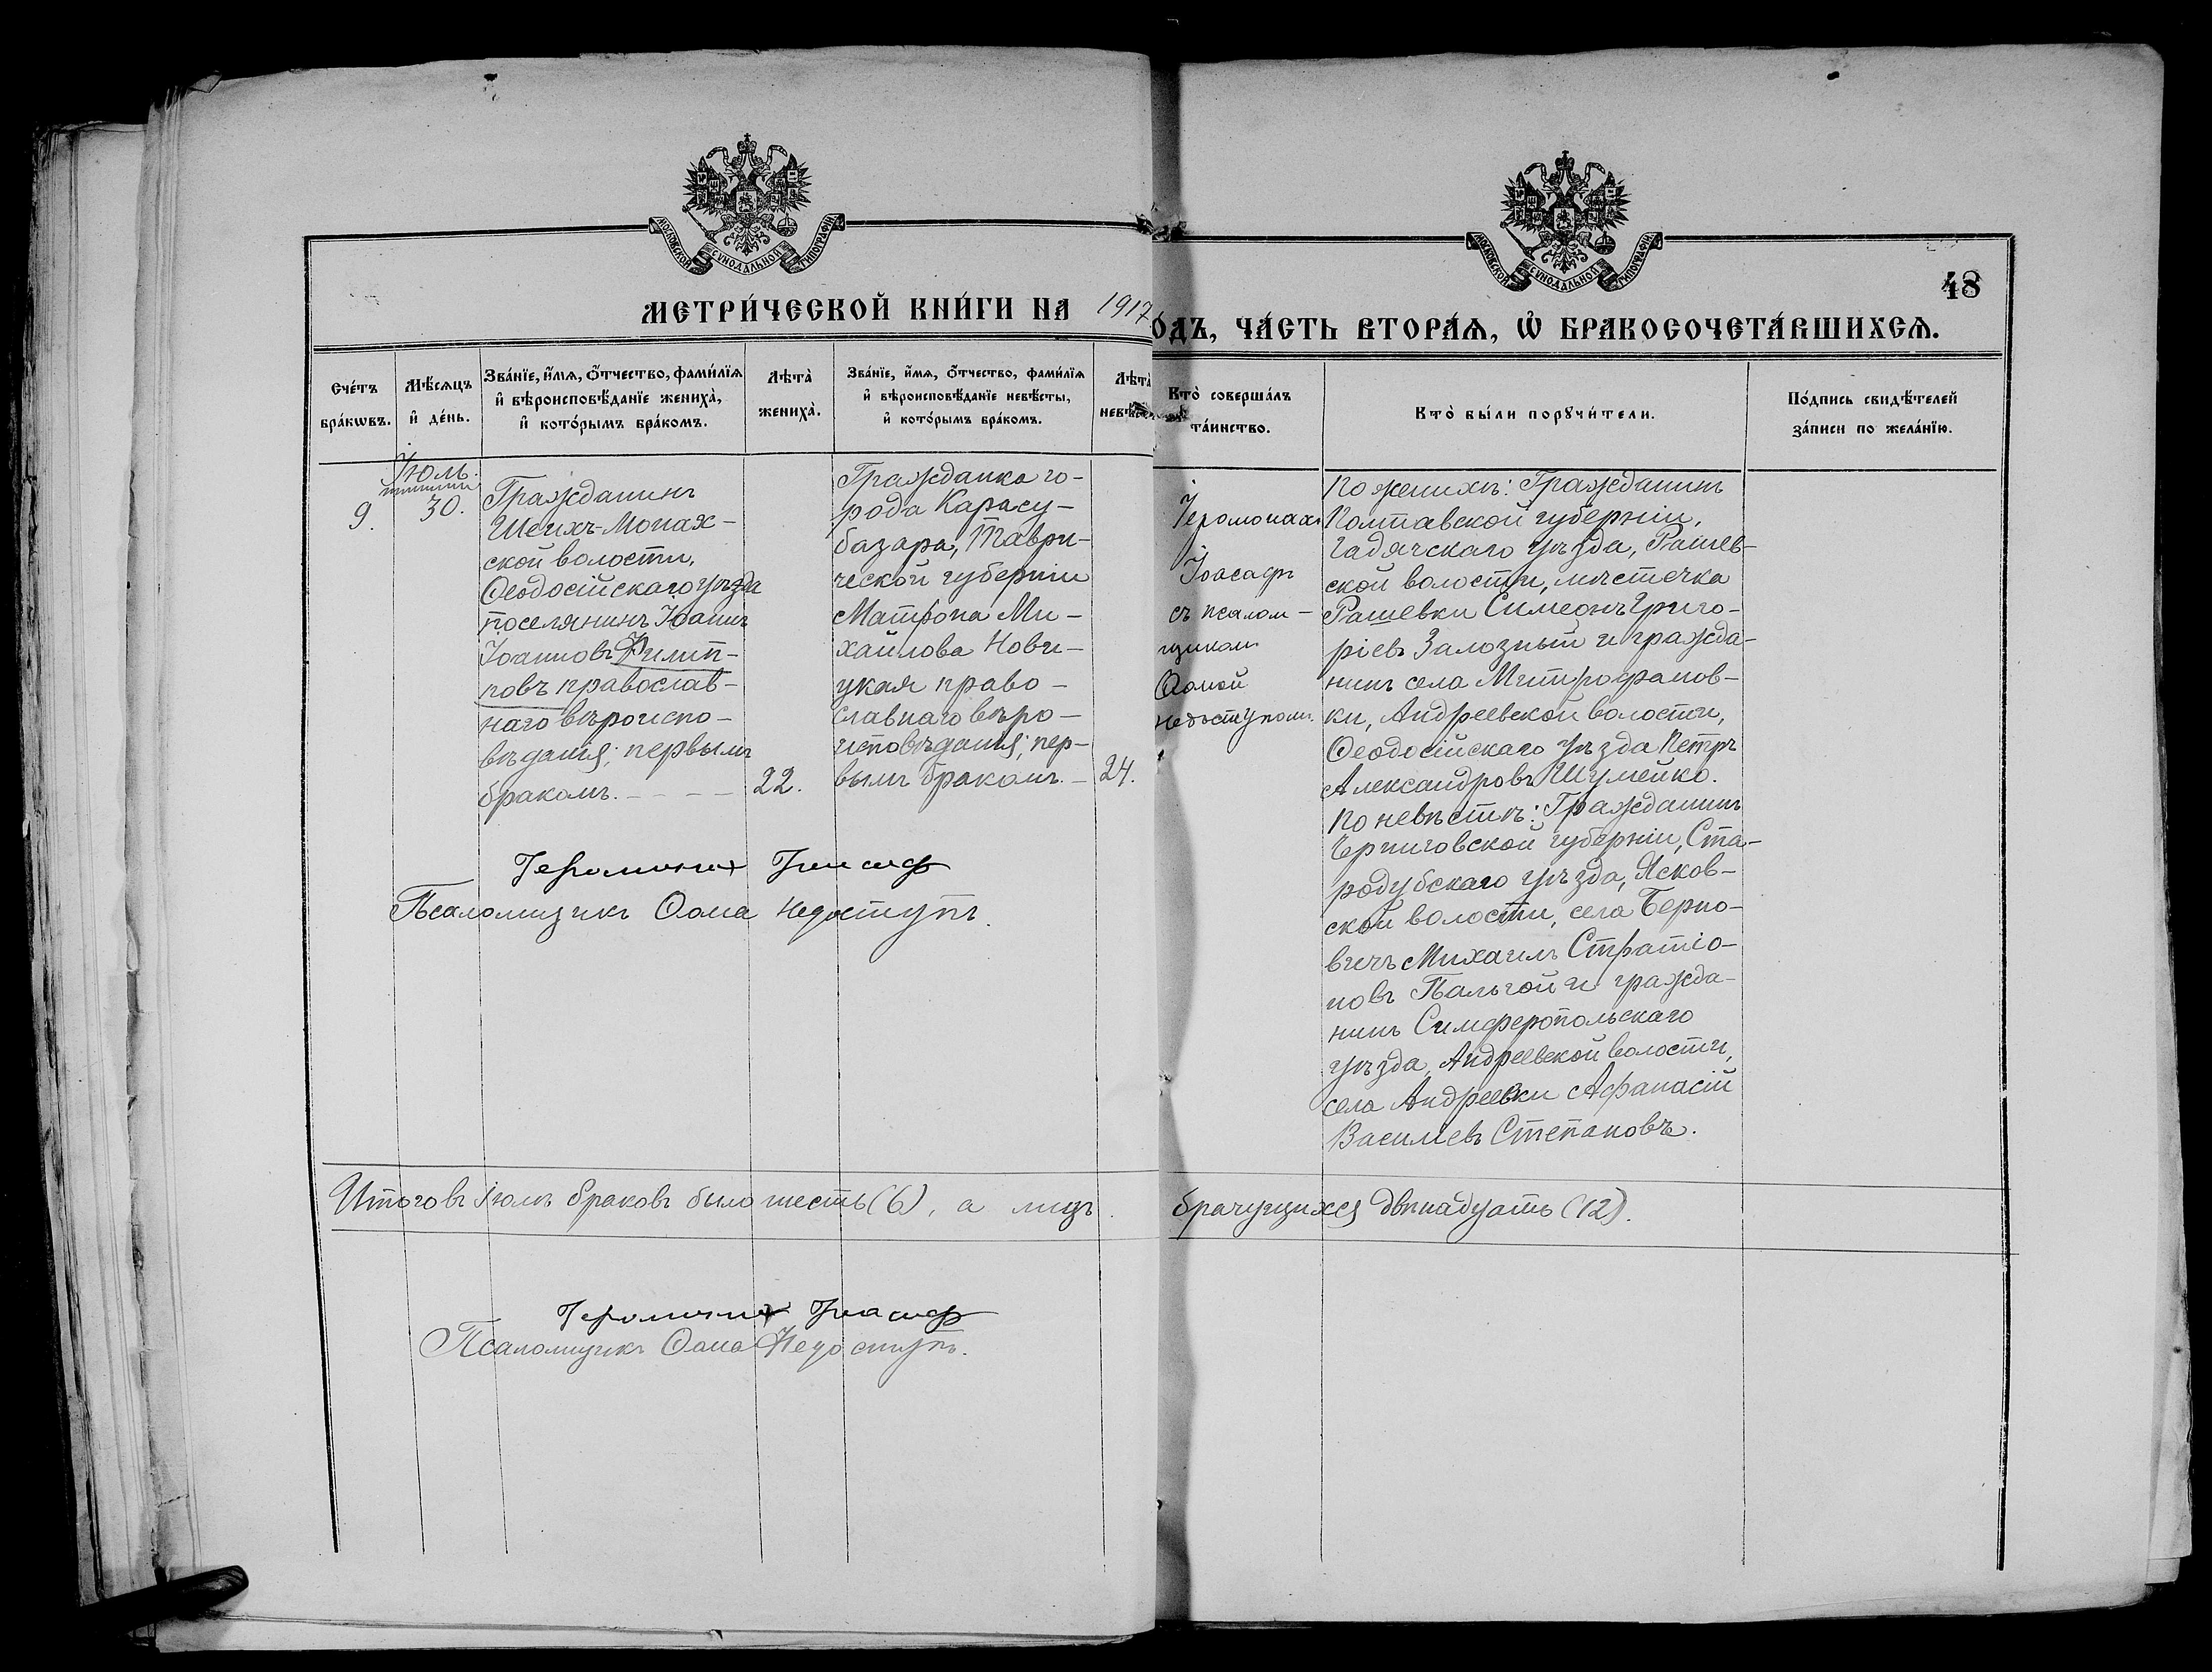 МОСКОВСКОЙ СѴНОДАЛЬНОЙ ТИПОГРАФІИ
МОСКОВСКОЙ СѴНОДАЛЬНОЙ ТИПОГРАФІИ
48
МЕТРИ́ЧЕСКОЙ КНИ́ГИ НА 1917
ОДЪ, ЧА́СТЬ ВТОРА́Ѧ, Ѡ҆ БРАКОСОЧЕТА́ВШИХСѦ.
Сче́тъ
бра́кѡвъ.
Мѣ́сѧцъ
и҆ де́нь.
Зва́нїе, и҆́мѧ, ѻ҆́тчество, фами́лїѧ
и҆ вѣроисповѣ́данїе жениха̀,
и҆ кото́рымъ бра́комъ.
Лѣта̀
жениха̀.
Зва́нїе, и҆́мѧ, ѻ҆́тчество, фами́лїѧ
и҆ вѣроисповѣ́данїе невѣ́сты,
и҆ кото́рымъ бра́комъ.
Лѣта̀
Кто̀ соверша́лъ
та́инство.
Кто̀ бы́ли порꙋчи́тели.
По́дпись свидѣ́телей
за́писи по жела́нїю.
9.
Іюль.
30.
Гражданинъ
Шейхъ-Монах-
ской волости,
Ѳеодосійскаго уѣзда
поселянинъ Іоаннъ
Іоанновъ Филип-
повъ православ-
наго вѣроиспо-
вѣданія; первымъ
бракомъ. - - - -
22.
Гражданка го-
рода Карасу-
базара, Таври-
ческой губерніи
Матрона Ми-
хайлова Нови-
цкая право-
славнаго вѣро-
исповѣданія; пер-
вымъ бракомъ. -
24.
Іеромонахъ
Іоасафъ
съ псалом-
щикомъ
Ѳомой
Недоступомъ.
По женихѣ: Гражданинъ
Полтавской губерніи,
Гадячскаго уѣзда, Рашев-
ской волости, мѣстечка
Рашевки Симеонъ Григо-
ріевъ Залозный и гражда-
нинъ села Митрофанов-
ки, Андреевской волости,
Ѳеодосійскаго уѣзда Петръ
Александровъ Шумейко.
По невѣстѣ: Гражданинъ
Черниговской губерніи, Ста-
родубскаго уѣзда, Ясков-
ской волости, села Берно-
вичъ Михаилъ Стратіо-
новъ Пальгой и гражда-
нинъ Симферопольскаго
уѣзда, Андреевской волости,
села Андреевки Афанасій
Василіевъ Степановъ.
Іеромонах Іоасаф
Псаломщикъ Ѳома Недоступъ.
Итого въ Іюлѣ браковъ было шесть (6), а лицъ брачущихся двѣнадцать (12).
Іеромонах Іоасаф
Псаломщикъ Ѳома Недоступъ.